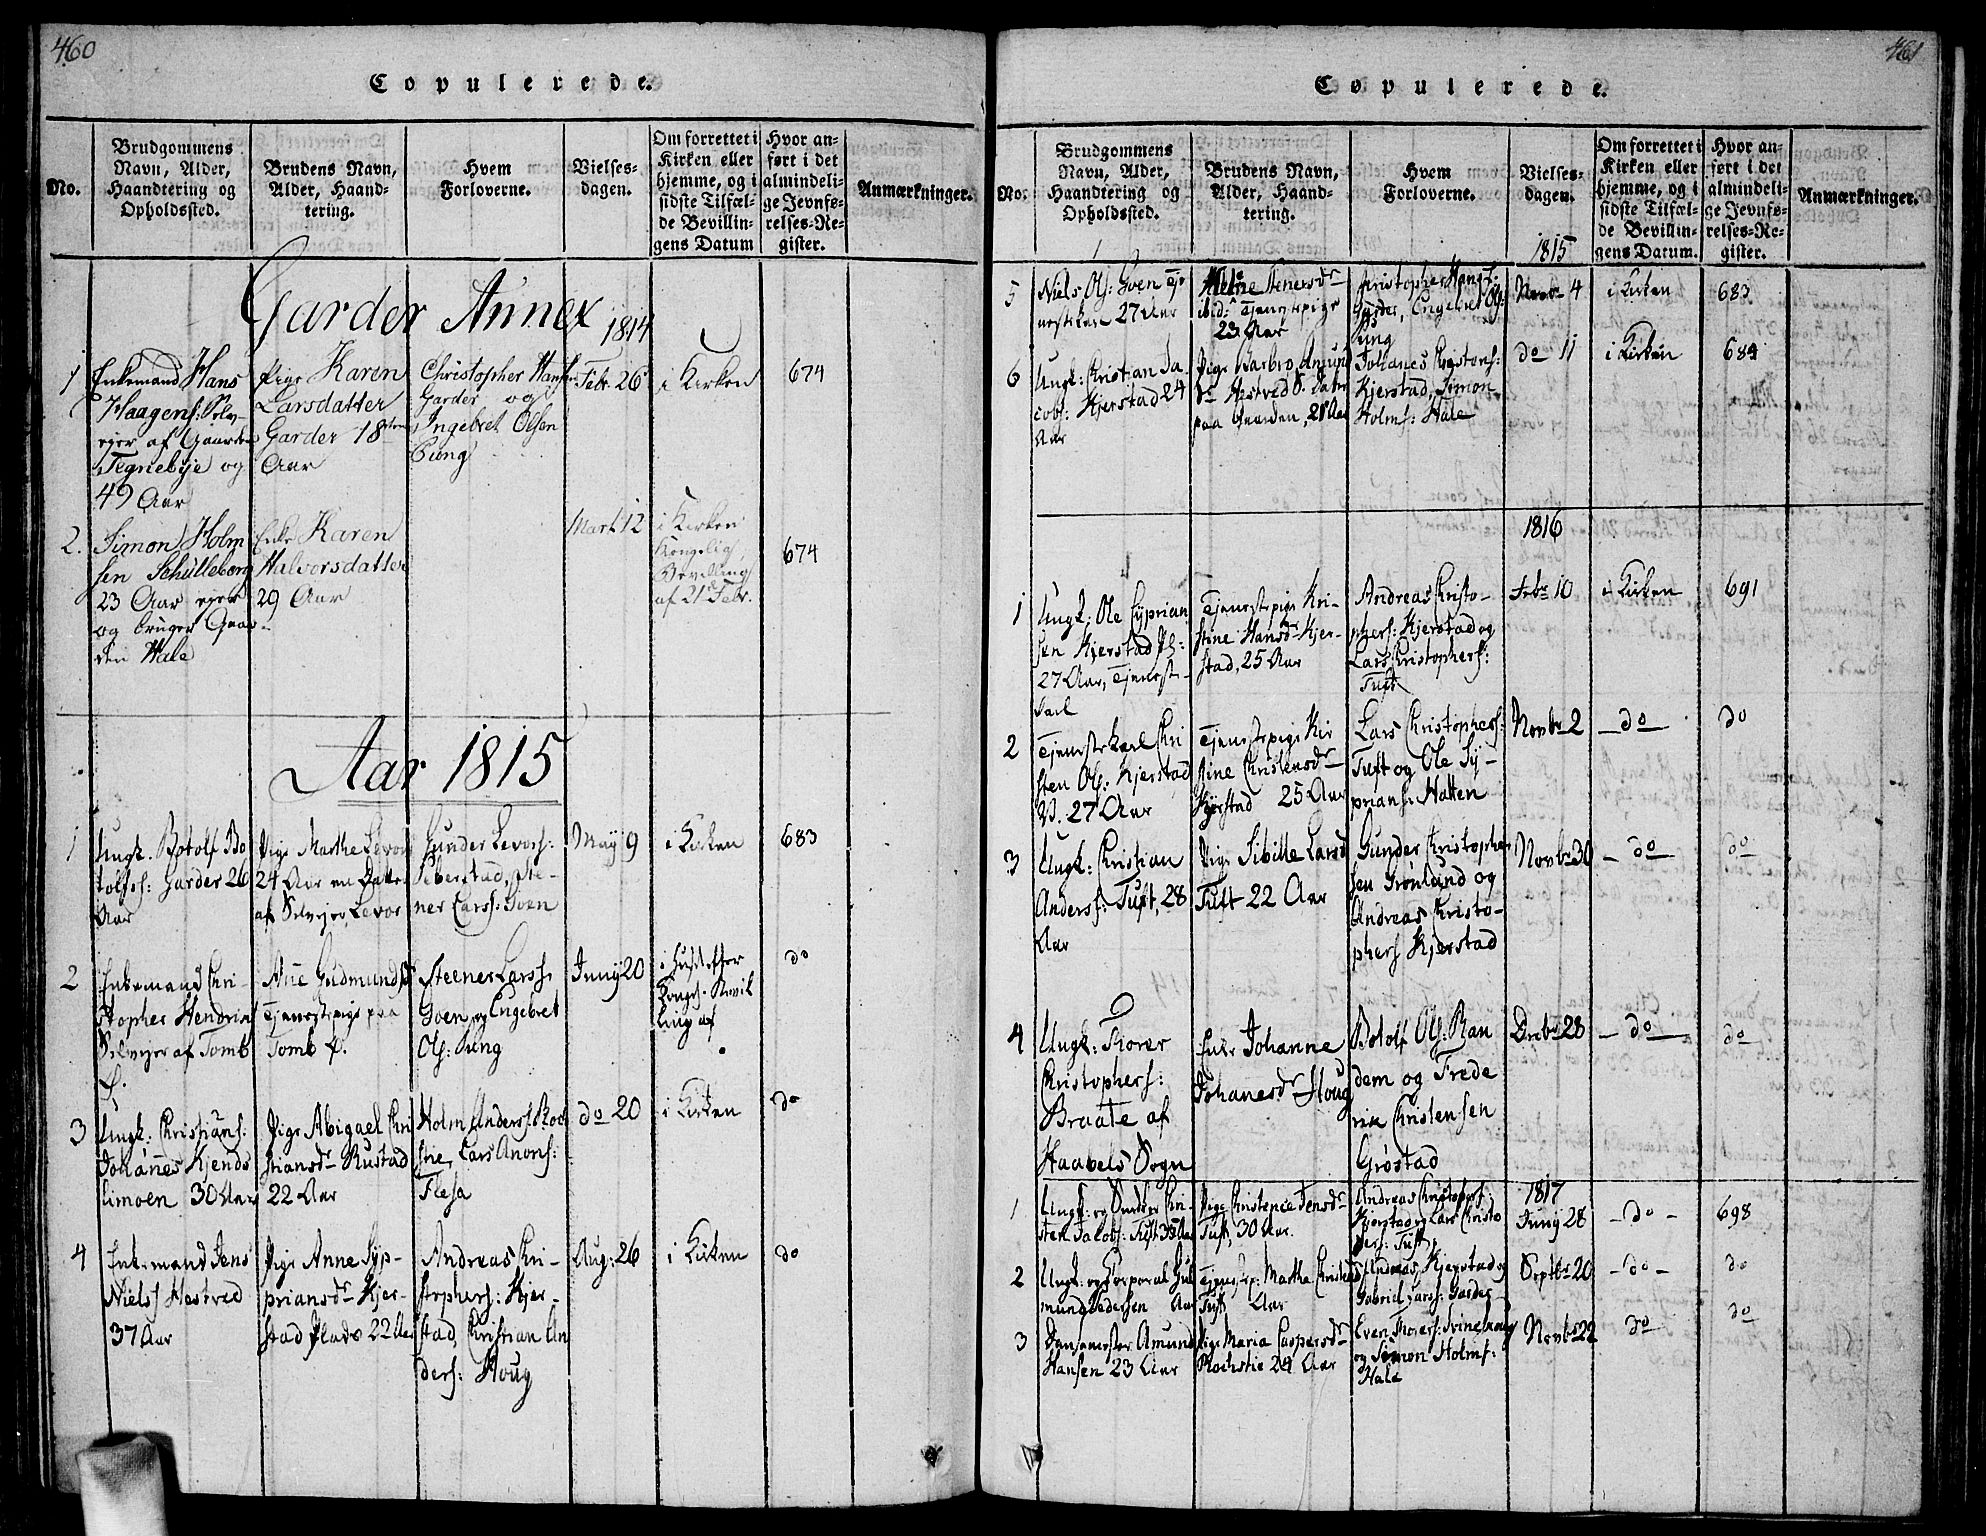 460
Copulerede.
No.
Brudgommens
Navn, Alder,
Haandtering og
Opholdssted.
Brudens Navn,
Alder, Haand-
tering.
Hvem
Forloverne.
Vielses-
dagen.
Om forrettet i
Kirken eller
hjemme, og i
sidste Tilfæl-
de Bevillin-
gens Datum
Hvor an-
ført i det
almindeli-
ge Jevnfø-
relses-Re-
gister.
Anmærkninger.
Garder Annex 1814
1
Enkemand Hans
Haagens: Selv-
eger af Gaarden
Tegnebye og
49 Aar
Pige Karen
Larsdatter
Garder 18
Aar
Christopher Hansen
Garder og
Ingebret Olsen
Pung
Febr. 26
i Kirken
674
2.
Simon Holm
sen Schulleborg
23 Aar eger
og bruger Gaar-
den Hale
Enke Karen
Halvorsdatter
29 Aar
Mart. 12
i Kirken
Kongelig
Bevilling
af 21 Febr.
674
Aar 1815
1
Ungk. Botolf Bo
tolfs: Garder 26
Aar
Pige Marthe Levors
24 Aar en Datter
af Selvejer Levor
Gunder Levors:
Seberstad, Ste-
ner Larss: Goen
May 9
i Kirken
683
2
Enkemand Chri-
stopher Hendrik
Selvejer af Tomb
Ø.
Anne Gudmundsd
Tjenestepige paa
Tomb Ø.
Steener Larss.
Goen og Engebret
Ols: Pung
Juny 20
i Huset efter
Kongl. Bevil
ling af
do
3
Ungk: Christians:
Johannes Kjends
limoen 30 Aar
Pige Abigael Chri
stiansdr Rustad
22 Aar
Holm Anderss: Roch
stie, Lars Anons:
Flesa
do 20
i Kirken
do
4
Enkemand Jens
Niels Hestved
37 Aar
Pige Anne Syp-
priansdr Kjer-
stad Plads 22 Aar
Andreas Chri-
stophers: Kjer-
stad, Christian An
ders: Houg
Aug: 26
i Kirken
do
461
Copulerede.
No.
Brudgommens
Navn, Alder,
Haandtering og
Opholdssted.
Brudens Navn,
Alder, Haand-
tering.
Hvem
Forloverne.
Vielses-
dagen.
1815
Om forrettet i
Kirken eller
hjemme, og i
sidste Tilfæl-
de Bevillin-
gens Datum.
Hvor an-
ført i det
almindeli-
ge Jevnfø-
relses-Re-
gister.
Anmærkninger.
5
Niels Ols: Goen Tje
nestekarl 27 Aar
ibid: Tjenestepige
23 Aar
Christopher Hans:
Garder, Engebret Ols:
Pung
Novbr 4
i Kirken
683
6
Ungk: Christian Ja-
cobs: Kjerstad 24
Aar
Pige Barbro Amund
dr Hestved
paa Gaarden, 21 Aar
Johanes
Kjerstad, Simon
Holms: Hale
do 11
i Kirken
684
1816
1
Ungk: Ole Cyprian
sen Kjerstad Pl:
27 Aar, Tjeneste-
karl
Tjenestepige Kri-
stine Hansdr Kjer-
stad, 25 Aar
Andreas Christo-
phers: Kjerstad og
Lars Christophers:
Tuft
Febr 10
i Kirken
691
2
Tjenestekarl Chri
sten Ols: Kjerstad
V. 27 Aar
Tjenestepige Kir
stine Christensdr
Kjerstad 25 Aar
Lars Christophers:
Tuft og Ole Sy-
prians: Hatten
Novbr 2
do
do
3
Ungk: Christian
Anderss: Tuft, 28
Aar
Pige Sibille Larsd
Tuft 22 Aar
Gunder Christopher
sen Grønlund og
Andreas Christo-
phers Kjerstad
Novbr 30
do
do
4
Ungk: Thorer
Christophers:
Braate af
Haabels Sogn
Enke Johanne
Johanesdr Houg
Botolf Ols: Ran
dem og Frede
rik Christensen
Grøstad
Decbr 28
do
do
1817
1
Ungk: og Snedker Chri
sten Jacobs: Tuft 35 Aar
Pige Christence Jensdr
Tuft, 30 Aar.
Andreas Christophers:
Kjerstad og Lars Christo
phers: Tuft
Juny 28
do
698
2
Ungk: og Corporal Gul
mund Pedersen Aar
Tjenestep: Martha Christensd
Tuft Aar
Andreas Kjerstad og
Gabriel Larss: Garder
Septbr 20
do
do
3
Amund
Hansen 23 Aar
Pige Maria Caspersdr
Rochstie 24 Aar
Even Thorers: Svineboug
og Simon Holms:
Hale
Novbr 22
do
do